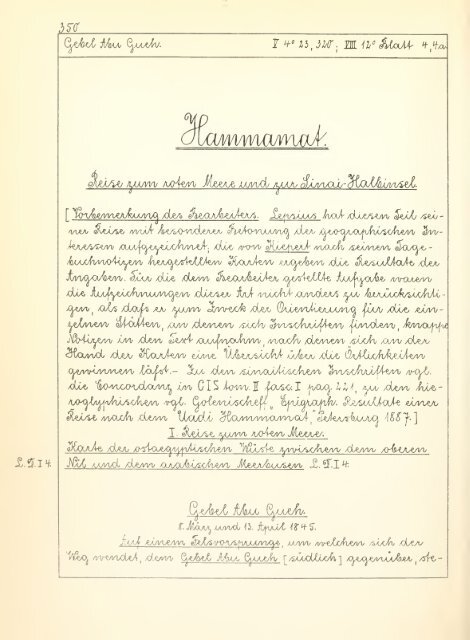 350
Gebel Abu Gueh. V 4° 23, 320; VIII 12° Blatt 4, 4a.
Hammamat.
Reise zum roten Meere und zur Sinai-Halbinsel.
[Vorbemerkung des Bearbeiters. Lepsius hat diesen Teil sei-
ner Reise mit besonderer Betonung der geographischen In-
teressen aufgezeichnet, die von Kiepert nach seinen Tage-
buchnotizen hergestellten Karten ergeben die Resultate der
Angaben. Für die dem Bearbeiter gestellte Aufgabe waren
die Aufzeichnungen dieser Art nicht anders zu berücksichti-
gen, als daſs er zum Zweck der Orientierung für die ein-
zelnen Stätten, an denen sich Inschriften finden, knappe
Notizen in den Text aufnahm, nach denen sich an der
Hand der Karten eine Übersicht über die Örtlichkeiten
gewinnen läſst. – Zu den sinaitischen Inschriften vgl.
die Concordanz in CIS tom. II fasc. I pag. 221, zu den hie-
roglyphischen vgl. Golenischeff, „Epigraph. Resultate einer
Reise nach dem Uadi Hammamat", Petersburg 1887.]
I. Reise zum roten Meere.
Karte der ostaegyptischen Wüste zwischen dem oberen
L. D. I 4. Nil und dem arabischen Meerbusen L. D. I 4.
Gebel Abu Gueh.
8. März und 13. April 1845.
Auf einem Felsvorsprunge, um welchen sich der
Weg wendet, dem Gebel Abu Gueh [südlich] gegenüber, ste-